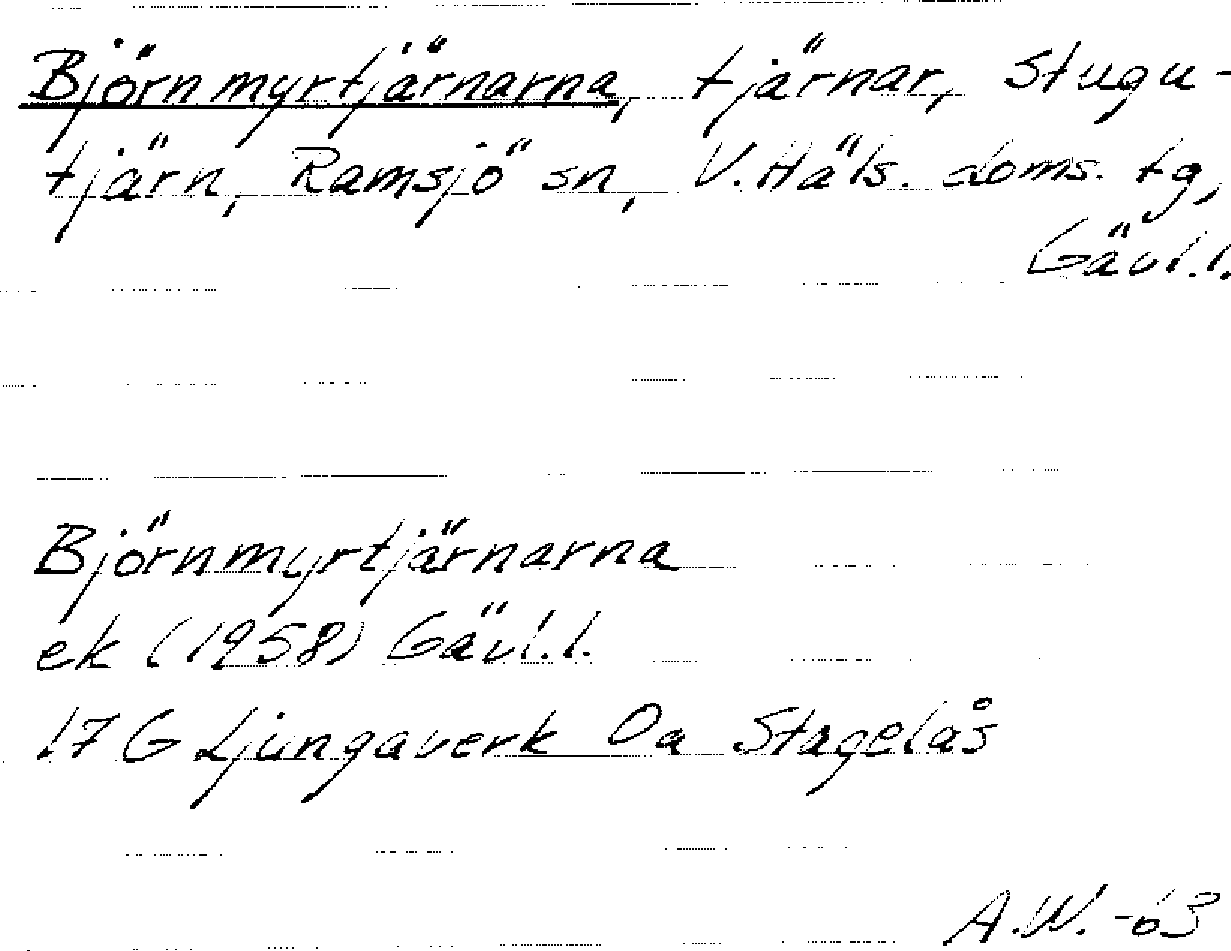 Björnmyrtjärnarna, tjärnar, Stugu-
tjärn, Ramsjö sn, V. Häls. doms. tg,
Gävl.l.
Björnmyrtjärnarna
ek (1958) Gävl.l.
17 G Ljungaverk 0a Stagelås
A.W. -63